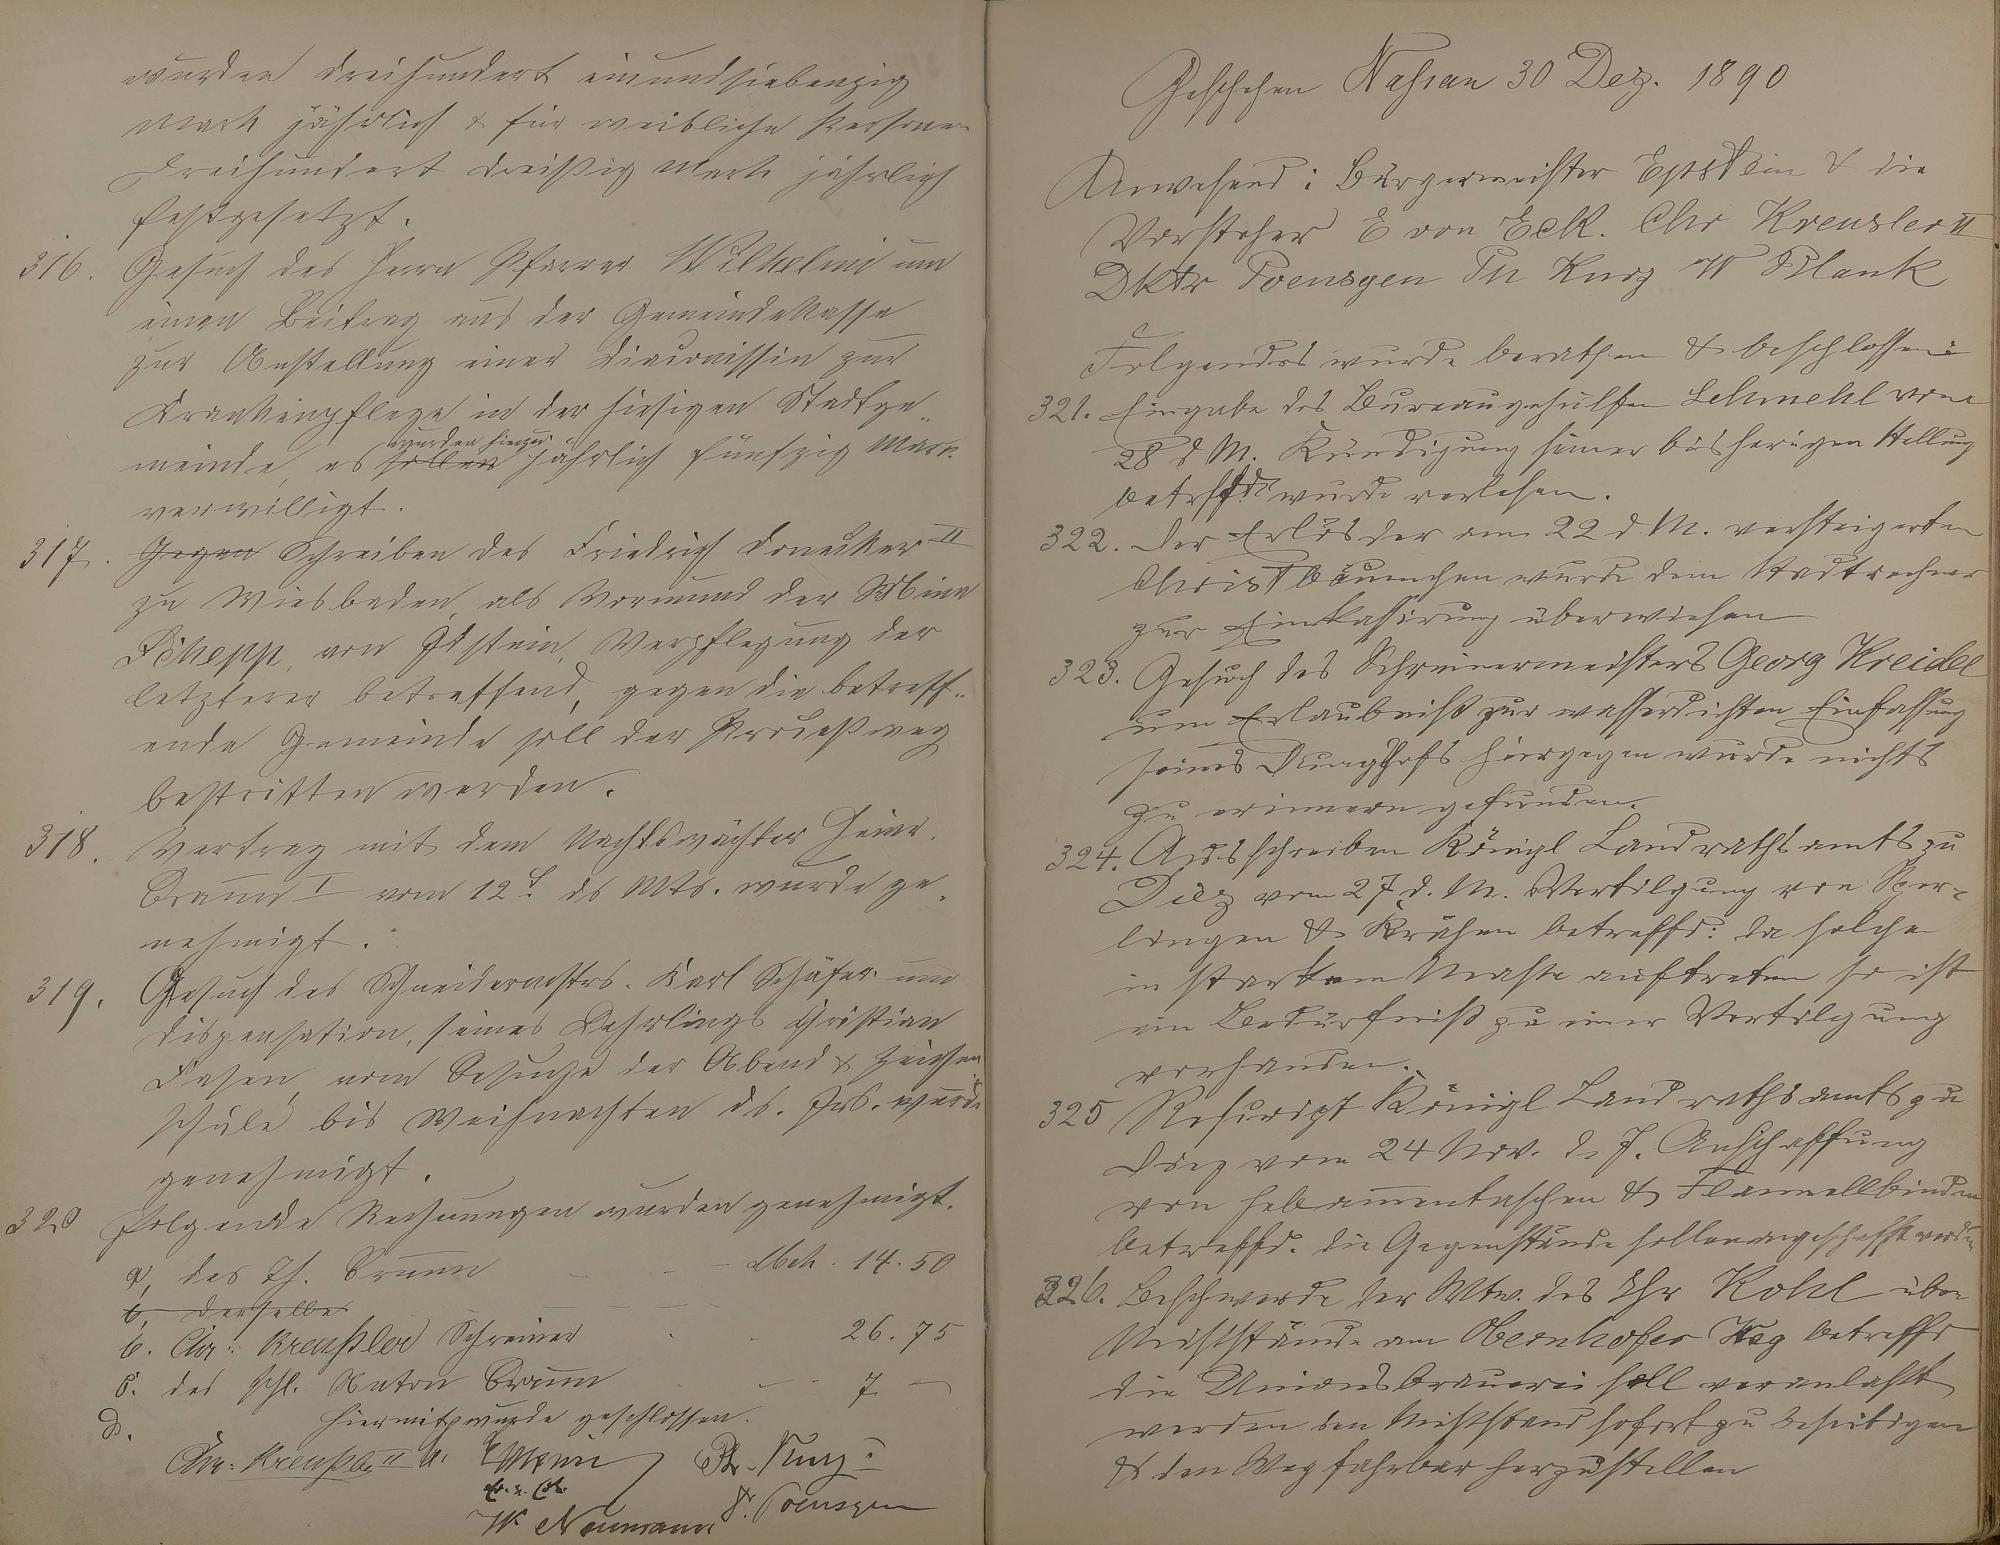 wurden dreihundert einundsiebenzig
Mark jährlich & für weibliche Personen
dreihundert dreißig Mark jährlich
festgesetzt.
316. Gesuch des Herrn Pfarrer Wilhelmi um
einen Beitrag aus der Gemeindekasse
zur Anstellung einer Diaconissin zur
Krankenpflege in der hiesigen Stadtge-
meinde, es sollen wurden hierzu jährlich fünfzig Mark
verwilligt.
317. Gegen Schreiben des Friedrich Donecker II
zu Wiesbaden, als Vormund der Mina
Schepp, von Idstein, Verpflegung der
letzterer betreffend, gegen die betreff-
ende Gemeinde soll der Proceßweg
bestritten werden.
318. Vertrag mit dem Nachtswächter Heinr.
Braun I vom 12t ds Mts. wurde ge-
nehmigt.
319. Gesuch des Schneidermstrs. Karl Schäfer um
Dispensation, seines Lehrlings Christian
Fasen, vom Besuche der Abend & Zeichen
schule bis Weihnachten ds. Jrs. wurde
genehmigt.
320 Folgende Rechnungen wurden genehmigt.
a, des Th. Braun Mk. 14.50
b, derselbe
b. Chr: Kreußler Schreiner 26.75
c. des Schl. Anton Braun 7 —
d. Hiermit wurde geschlossen.
Chr: Kreußler II Ph. Kurz
W. Neumann Dr. Poensgen
Geschehen Nassau 30 Dez. 1890
Anwesend: Bürgermeister Epstein & die
Vorsteher E von Eck. Chr Kreusler II
Dktr Poensgen Ph Kurz W Plank
Folgendes wurde berathen & beschlossen:
321. Eingabe des Bureaugehülfen Lehmehl vom
28 d M. Kündigung seiner bisherigen Stellung
betrffd. wurde verlesen.
322. Der Erlös der am 22 d. M. versteigerten
Christbäumchen wurde dem Stadtrechner
zur Einkassirung überwiesen
323. Gesuch des Schreinermeisters Georg Kreidel
um Erlaubniß zur wasserdichten Einfassung
seines Dunghofs hiergegen wurde nichts
zu erinnern gefunden.
324. Ausschreiben Königl Landrathsamts zu
Diez vom 27 d. M. Vertilgung von Sper-
lingen & Krähen betreffd: da solche
in starkem Maße auftreten so ist
ein Bedürfniß zu einer Vertilgung
vorhanden.
325 Rescript Königl Landrathsamts zu
Diez vom 24 Nov. d. J. Anschaffung
von Hebammentaschen & Flanellbinden
betreffd. die Gegenstände sollen angeschafft werden
326. Beschwerde der Wtw. des Chr Kohl über
Mißstände am Obernhofer Weg betreffd
die Unionsbrauerei soll veranlaßt
werden den Mißstand sofort zu beseitigen
& den Weg fahrbar herzustellen